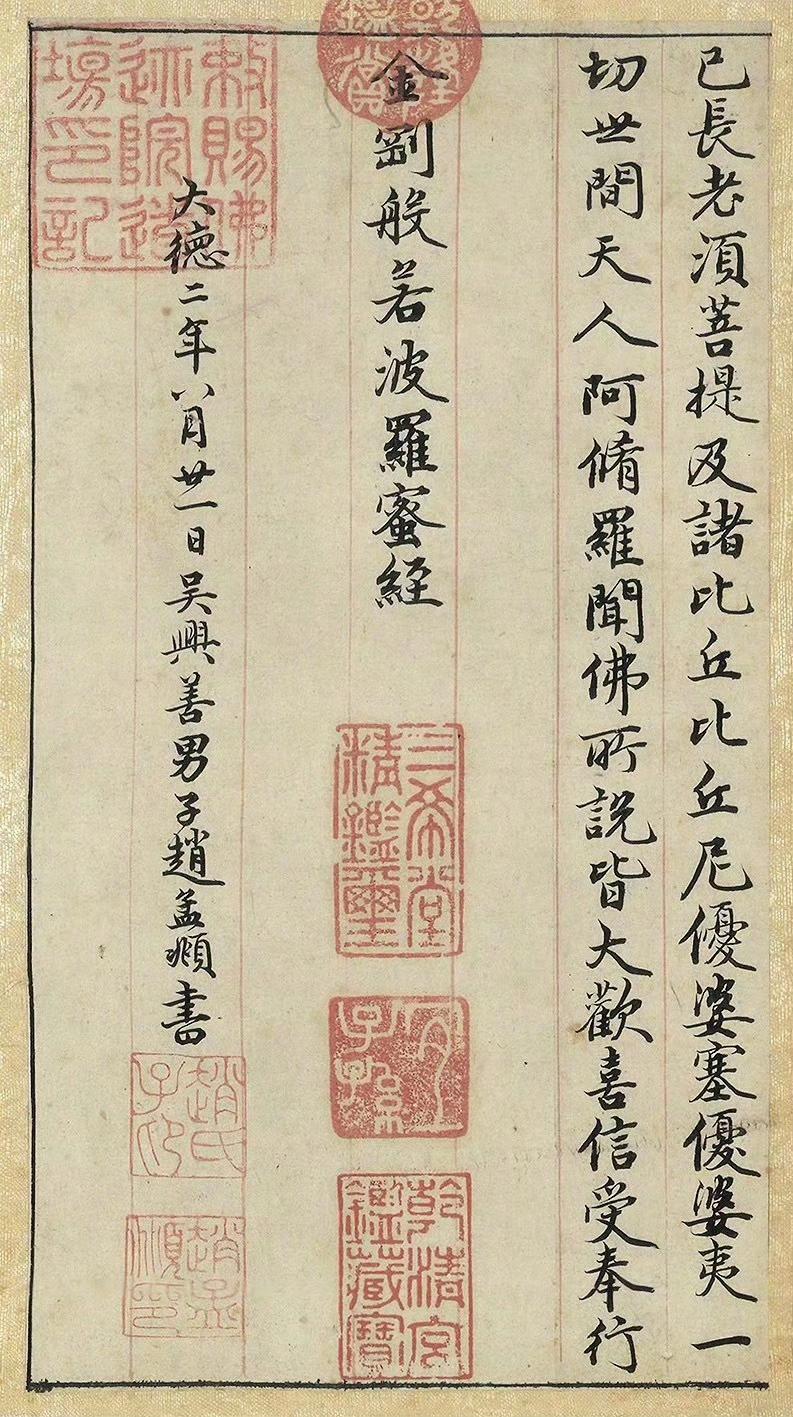 已長老須菩提及諸比丘比丘尼優婆塞優婆夷一
切世間天人阿脩羅聞佛所說皆大歡喜信受奉行
金剛般若波羅蜜經
三希堂精鑑璽
宜子孫
乾清宮鑑藏寶
大德二年八月廿一日吴興善男子趙孟頫書
趙氏子昂
趙孟頫印